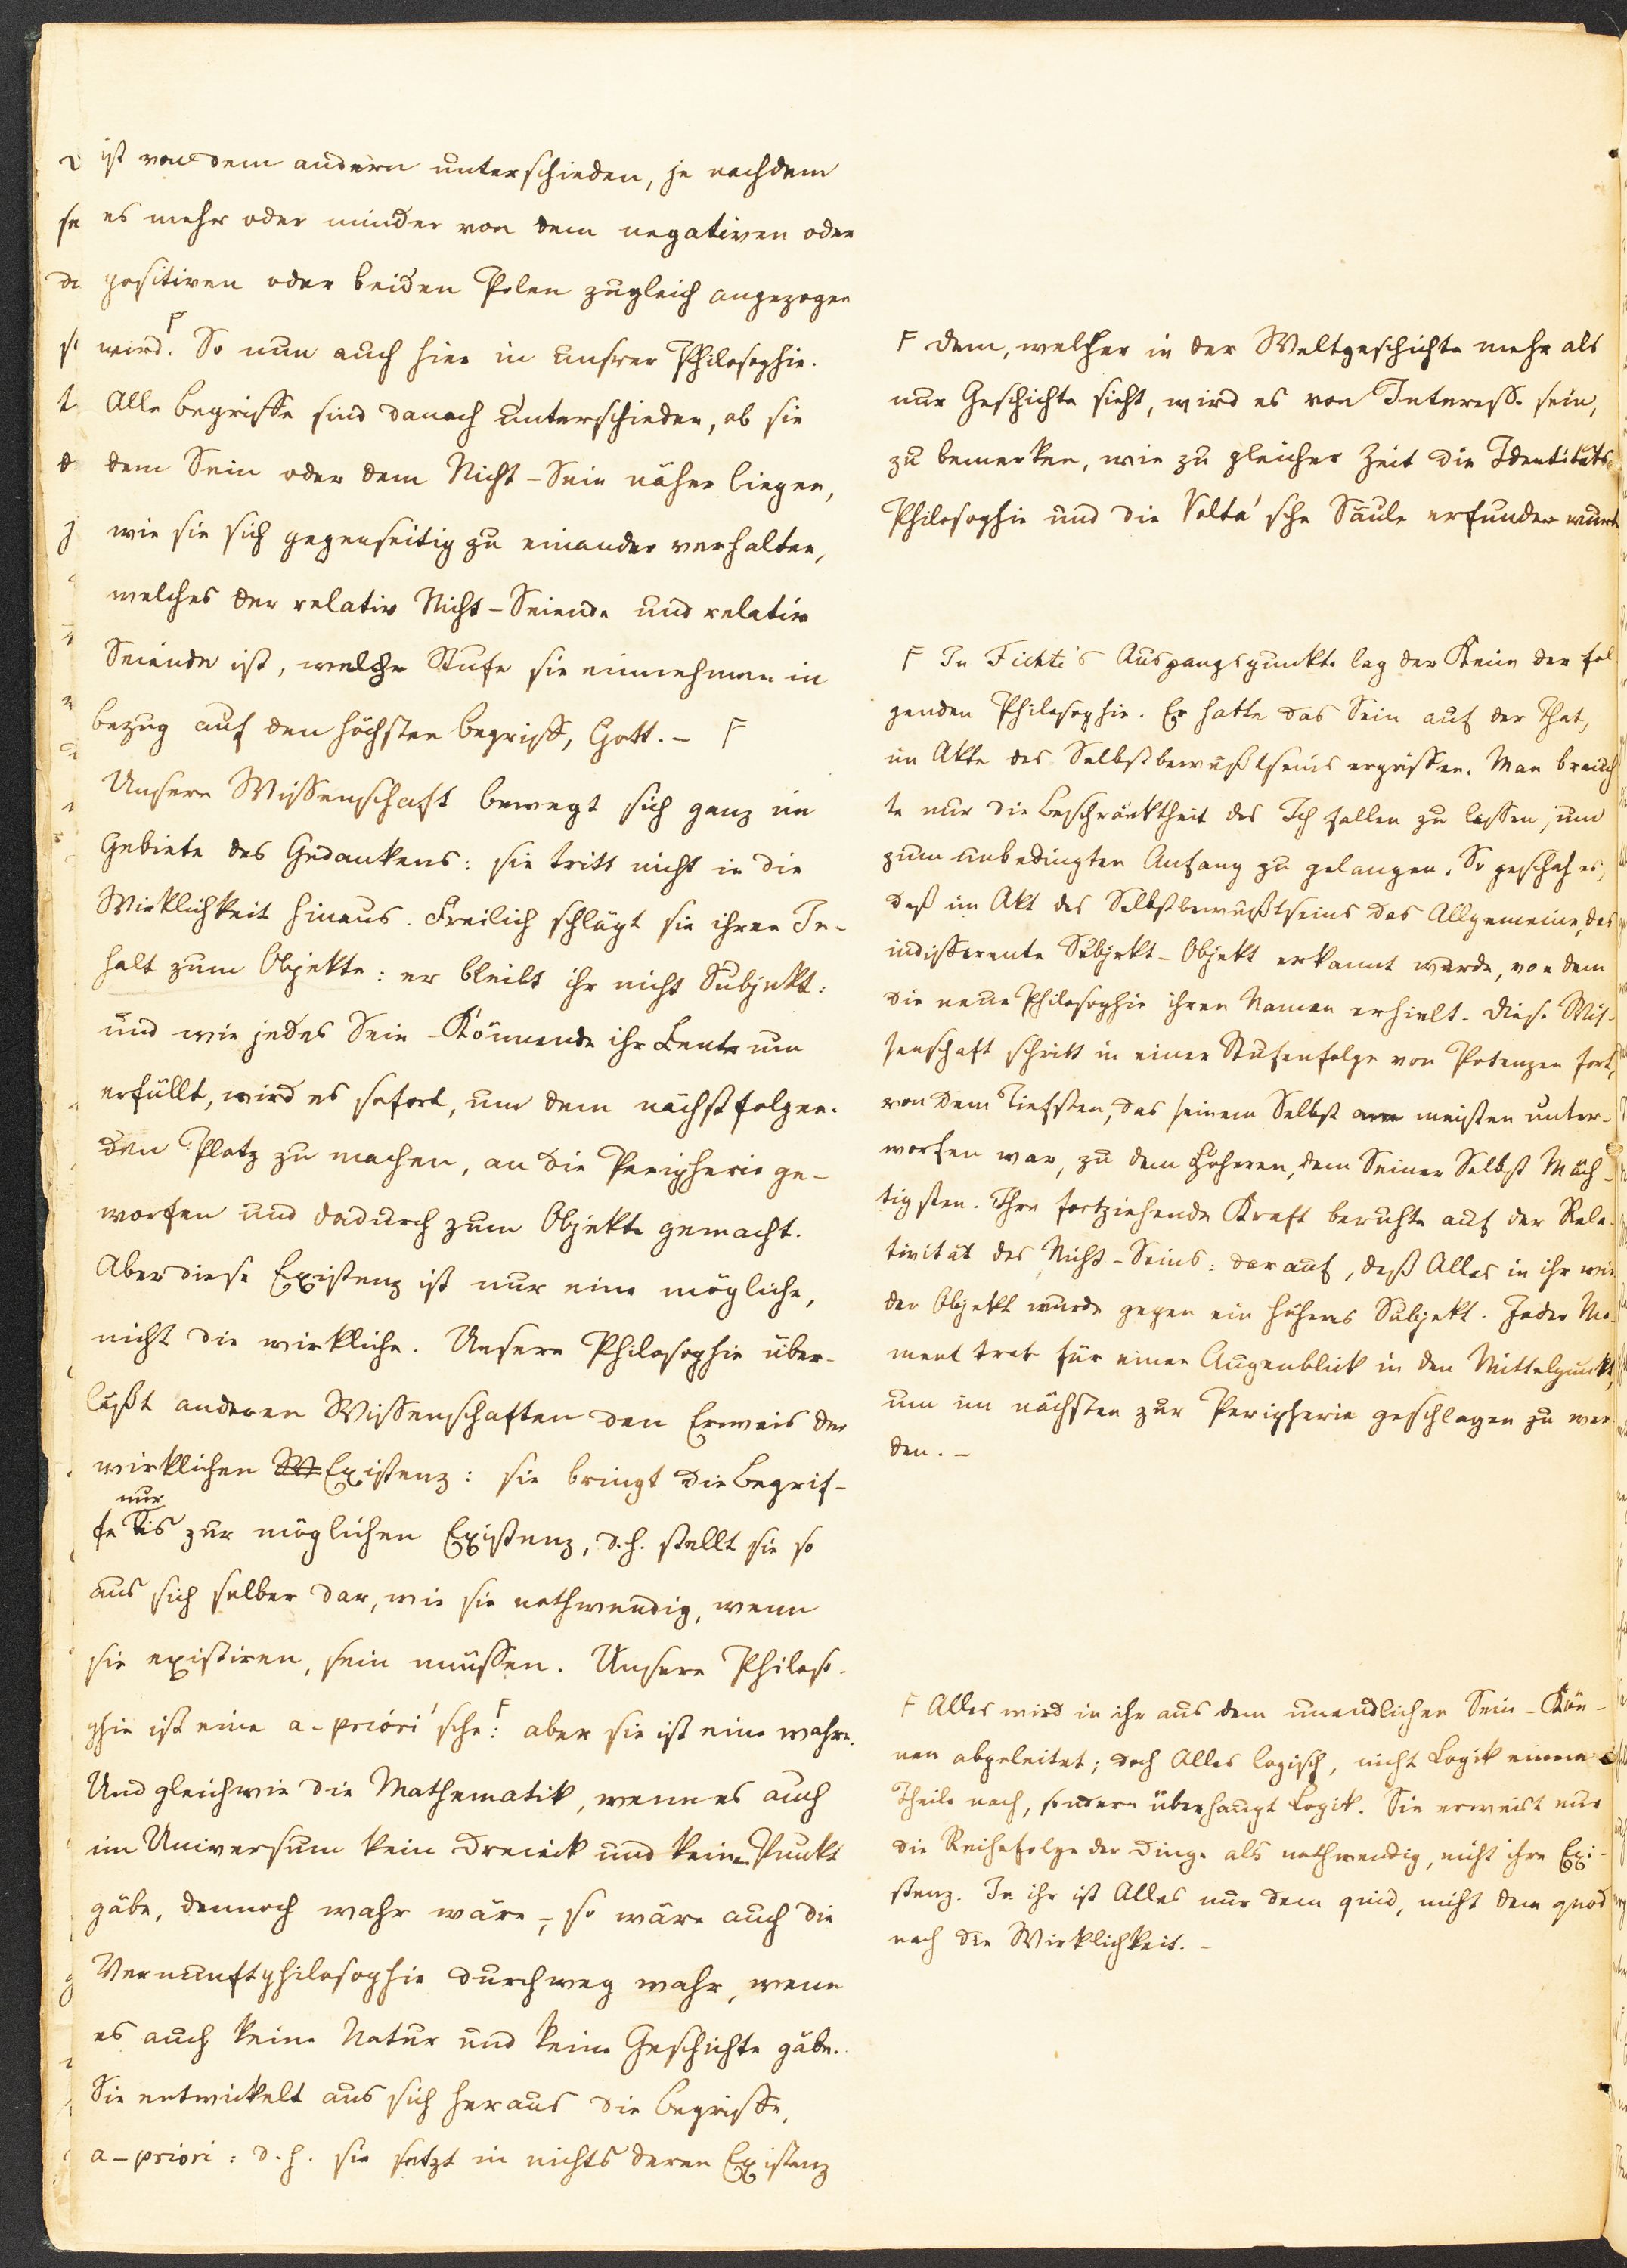 ist von dem andern unterschieden, je nachdem
es mehr oder minder von dem negativen oder
positiven oder beiden Polen zugleich angezogen
wird. F So nun auch hier in unsrer Philosophie.
Alle Begriffe sind danach unterschieden, ob sie
dem Sein oder dem Nicht-Sein näher liegen,
wie sie sich gegenseitig zu einander verhalten,
welches der relativ Nicht-Seiende und relativ
Seiende ist, welche Stufe sie einnehmen in
bezug auf den höchsten Begriff, Gott. – F
Unsere Wissenschaft bewegt sich ganz im
Gebiete des Gedankens: sie tritt nicht in die
Wirklichkeit hinaus. Freilich schlägt sie ihren In-
halt zum Objekte: er bleibt ihr nicht Subjekt:
und wie jedes Sein-Könnende ihr Centrum
erfüllt, wird es sofort, um dem nächstfolgen-
den Platz zu machen, an die Peripherie ge-
worfen und dadurch zum Objekte gemacht.
Aber diese Existenz ist nur eine mögliche,
nicht die wirkliche. Unsere Philosophie über-
läßt anderen Wissenschaften den Erweis der
wirklichen Existenz: sie bringt die Begrif-
nur
fe bis zur möglichen Existenz, d. h. stellt sie so
aus sich selber dar, wie sie nothwendig, wenn
sie existiren, sein müssen. Unsere Philoso-
phie ist eine a-priori'sche F: aber sie ist eine wahre.
Und gleichwie die Mathematik, wenn es auch
im Universum kein Dreieck und keinen Punkt
gäbe, dennoch wahr wäre, – so wäre auch die
Vernunftphilosophie durchweg wahr, wenn
es auch keine Natur und keine Geschichte gäbe.
Sie entwickelt aus sich heraus die Begriffe,
a-priori: d. h. sie setzt in nichts deren Existenz
F dem, welcher in der Weltgeschichte mehr als
nur Geschichte sieht, wird es von Interesse sein,
zu bemerken, wie zu gleicher Zeit die Identitäts-
Philosophie und die Volta'sche Säule erfunden
F In Fichte's Ausgangspunkte lag der Keim der fol
genden Philosophie. Er hatte das Sein auf der That,
im Akte des Selbstbewußtseins ergriffen. Man brauch
te nur die Beschränktheit des Ich fallen zu lassen, um
zum unbedingten Anfang zu gelangen. So geschah es,
daß im Akt des Selbstbewußtseins das Allgemeine, das
indifferente Subjekt-Objekt erkannt wurde, von dem
die neue Philosophie ihren Namen erhielt. Diese Wis-
senschaft schritt in einer Stufenfolge von Potenzen fort,
von dem Tiefsten, das seinem Selbst am meisten unter-
worfen war, zu dem Höheren, dem Seiner Selbst Mäch-
tigsten. Ihre fortziehende Kraft beruhte auf der Rela-
tivität des Nicht-Seins: darauf, daß Alles in ihr wie
der Objekt wurde gegen ein höheres Subjekt. Jeder Mo-
ment trat für einen Augenblick in den Mittelpunkt,
um im nächsten zur Peripherie geschlagen zu wer
den. –
F Alles wird in ihr aus dem unendlichen Sein-Kön-
nen abgeleitet; doch Alles logisch, nicht Logik einem
Theile nach, sondern überhaupt Logik. Sie erweist nur
die Reihefolge der Dinge als nothwendig, nicht ihre Exi-
stenz. In ihr ist Alles nur dem quid, nicht dem quod
nach die Wirklichkeit. –